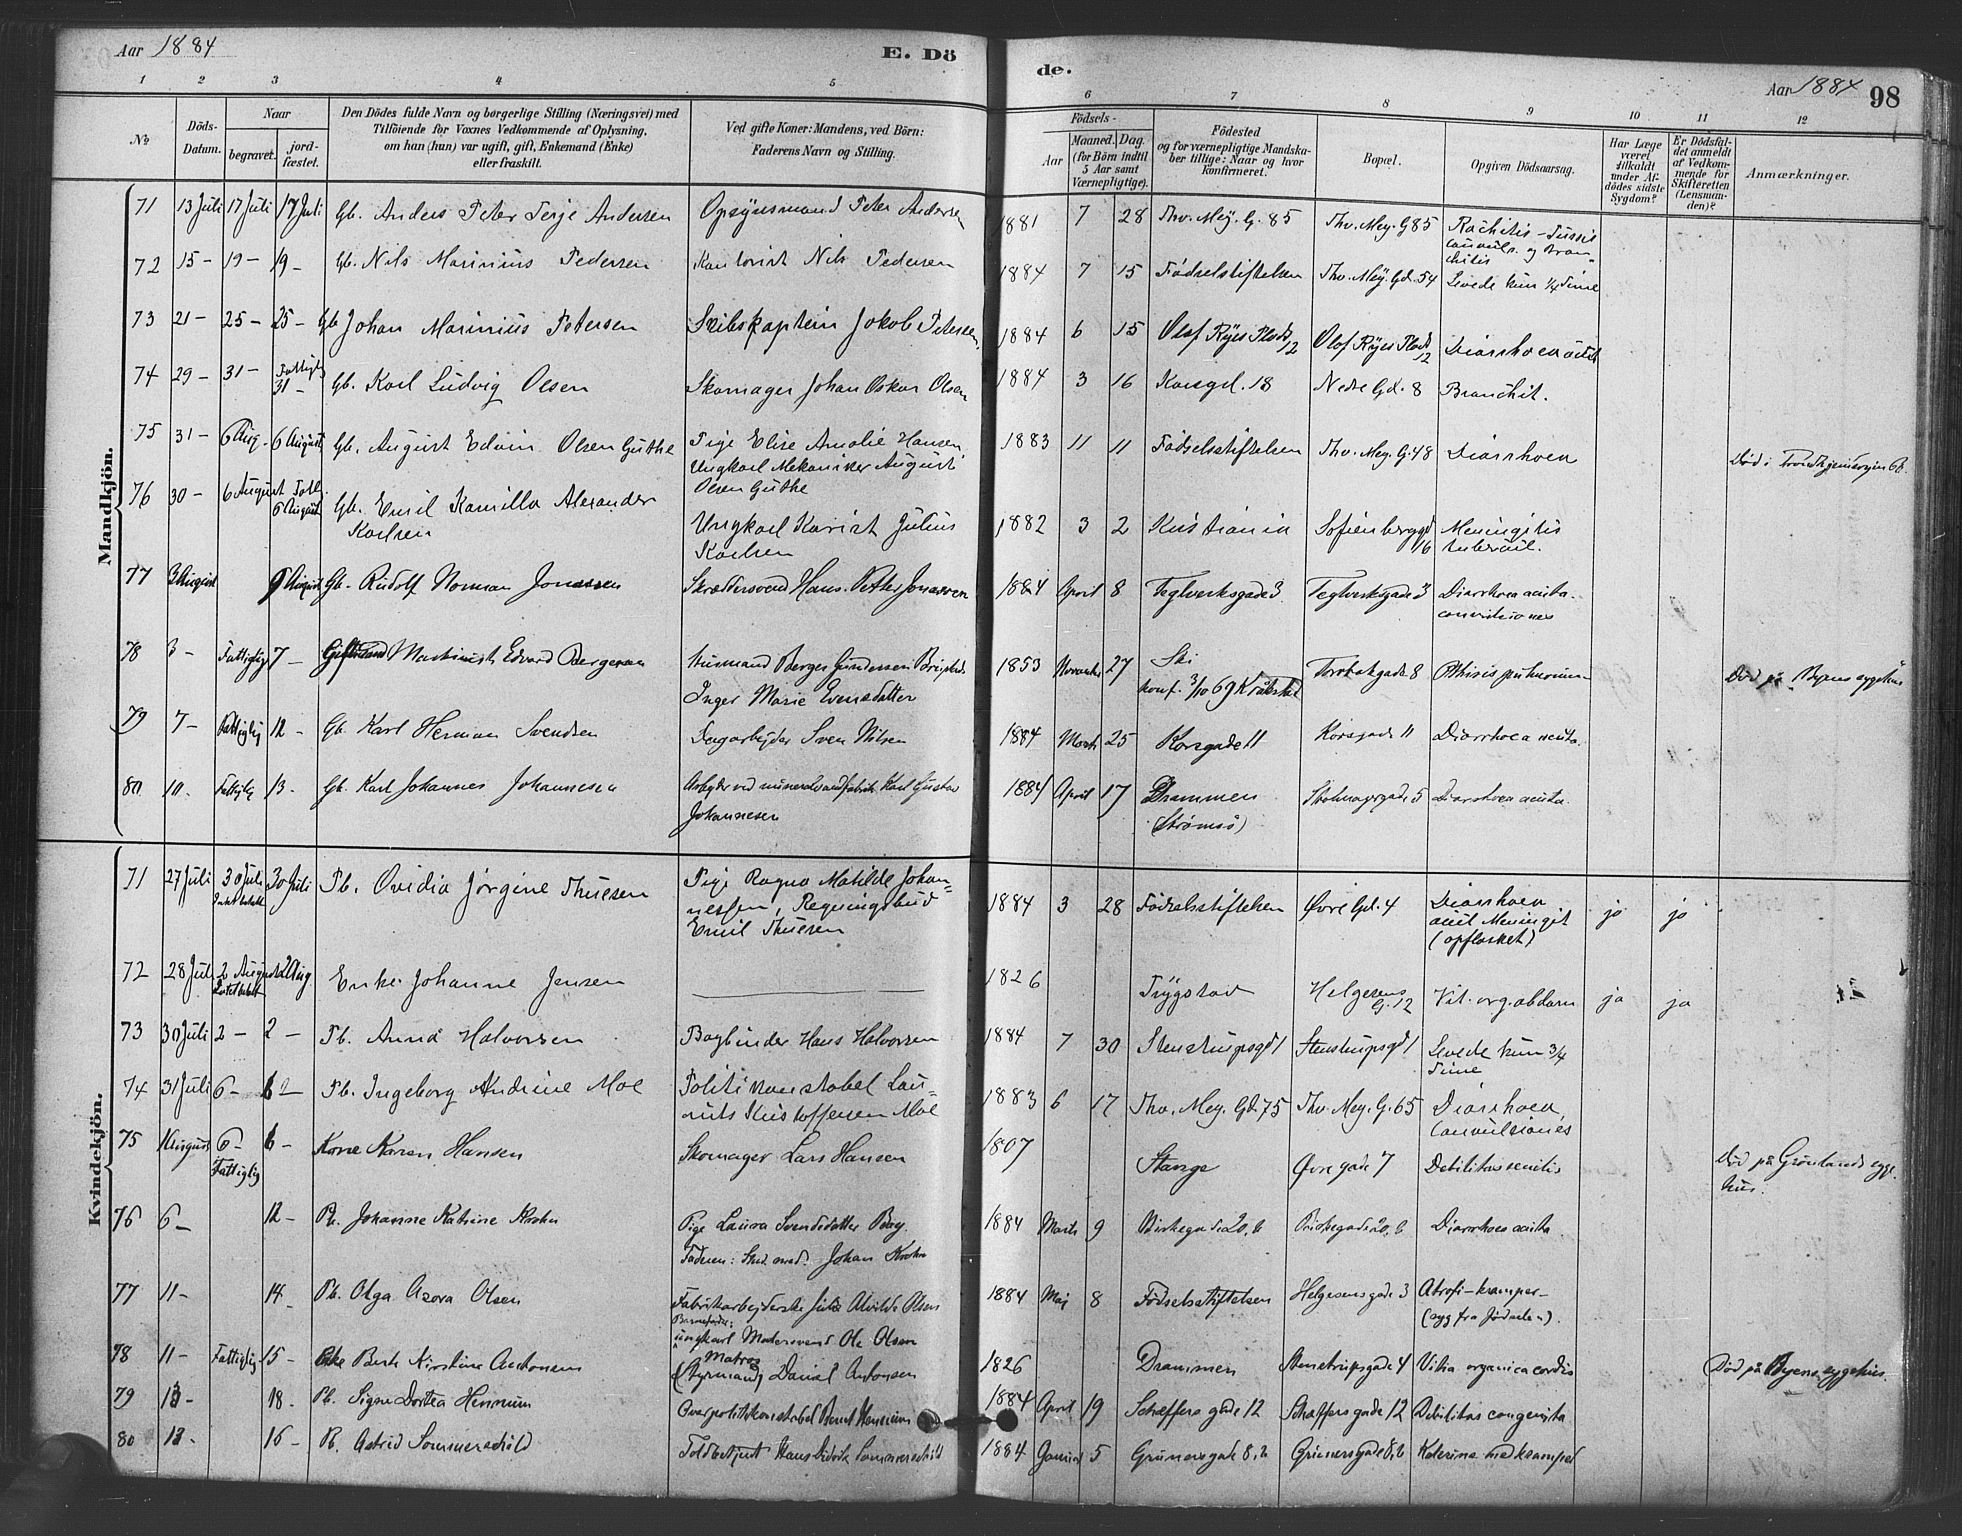 Aar 1884
E. Dö
de.
Aar 1884 98
1 2 3 4 5 6 7 8 9 10 11 12
No
Döds-Datum.
Naar
begravet.
jord-fæstet.
Den Dödes fulde Navn og borgerlige Stilling (Næringsvei) med
Tilföiende for Voxnes Vedkommende af Oplysning,
om han (hun) var ugift, gift, Enkemand (Enke)
eller fraskilt.
Ved gifte Koner: Mandens, ved Börn:
Faderens Navn og Stilling.
Födsels-
Aar
Maaned. Dag.
(for Börn indtil
5 Aar samt
Værnepligtige).
Födested
og for værnepligtige Mandska-
ber tillige: Naar og hvor
konfirmeret.
Bopæl.
Opgiven Dödsaarsag.
Har Læge
været
tilkaldt
under Af-
dödes sidste
Sygdom?
Er Dödsfal-
det anmeldt
af Vedkom-
mende for
Skifteretten
(Lensman-
den)?
Anmærkninger.
Mandkjön.
71 13 Juli 17 Juli 17 Juli Gb. Anders Peter Terje Andersen Opsynsmand Peter Andersen 1881 7 28 Thv. Mey. G. 85 Thv. Mey. G 85 Rachitis - Tussis
convuls. og Bron-
chitis
72 15 - 19 - 19 - Gb. Nils Marinius Pedersen Kontorist Nils Pedersen 1884 7 15 Fødselsstiftelsen Thv. Mey. Gd. 54 Levede kun 1/4 Time
73 21 - 25 - 25 - Gb Johan Marinius Petersen Skibskaptein Jakob Petersen 1884 6 15 Olaf Ryes Plads 12 Olaf Ryes Plads 12 Diarrhoea acut
74 29 - 31 - Fattigl. 31 - Gb. Karl Ludvig Olsen Skomager Johan Oskar Olsen 1884 3 16 Korsgd. 18 Nedre Gd. 8 Bronchit.
75 31 - 6 Aug. 6 August Gb. August Edvin Olsen Guthe Pige Elise Amalie Hansen
Ungkarl Mekaniker August
Olsen Guthe 1883 11 11 Fødselsstiftelsen Thv. Mey. G. 48 Diarrhoea Død i
76 30 - 6 August Fattl. 6 August Gb. Emil Kamillo Alexander
Karlsen Ungkarl Julius
Karlsen 1882 3 2 Kristiania Sofienberggd 16 Meningitis
tubercul.
77 3 August 9 August Gb. Rudolf Norman Jonassen Skræddersvend Hans Petter Jonassen 1884 April 8 Teglverksgade 3 Teglverksgade 3 Diarrhoea acuta.
convulsiones
78 3 - Fattiglig 7 - Maskinist Edvard Bergersen Husmand Berger Gundersen
Inger Marie Evensdatter 1853 November 27 Ski
konf. 3/10 69 Kråkstad Torvbakgade 8 Phthisis pulmonum Død på Byens sygehus
79 7 - Fattiglig 12 - Gb. Karl Herman Svendsen Dagarbejder Sven Nilsen 1884 Marts 25 Korsgade 11 Korsgade 11 Diarrhoea acuta.
80 10. Fattiglig 13 - Gb. Karl Johannes Johannesen Arbejder ved mineralvandfabrik Karl Gustav
Johannesen 1884 April 17 Drammen
(Strømsø) Skolmagergade 5 Diarrhoea acuta.
Kvindekjön.
71 27 Juli 30 Juli 30 Juli Pb. Ovidia Jørgine Thuesen Pige Ragna Matilde Johan-
nessen, Regningsbud
Emil Thuesen 1884 3 28 Fødselsstiftelsen Øvre Gd. 4 Diarrhoea
acut Meningit
(opflasket) ja ja
72 28 Juli 2 August 2 Aug. Enke Johanne Jensen 1826 Trygstad Helgesens G. 12 Vit. org. abdom ja ja
73 30 Juli 2 - 2 - Pb. Anna Halvorsen Bogbinder Hans Halvorsen 1884 7 30 Stenstrupsgd 1 Stenstrupsgd 1 Levede kun 3/4
Time
74 31 Juli 6 - 6 - Pb. Ingeborg Andrine Moe Politikonstabel Lau-
rits Kristoffersen Moe 1883 6 17 Thv. Mey. Gd. 75 Thv. Mey. G. 65 Diarrhoea,
Convulsiones
75 August 6 -
Fattiglig 6 - Kone Karen Hansen Skomager Lars Hansen 1807 Stange Øvregade 7 Debilitas senilis Død på Grønlands syge-
hus.
76 6 - 12 - Pb. Johanne Katrine Krohn Pige Laura Svendsdatter Bay.
Faderen: Stud. med. Johan Krohn 1884 Marts 9 Birkegade 20, b Birkegade 20, b Diarrhoea acuta
77 11 - 14 - Pb. Olga Asora Olsen Fabrikarbejderske Julie Alvilde Olsen
Barnefader:
ungkarl Matersvend Ole Olsen 1884 Maj 8 Fødselsstiftelsen Helgesensgade 3 Atrofi - kramper -
(syg fra Fødselen).
78 11 - Fattiglig 15 - Enke Berte Kirstine Antonsen Matros
(Styrmand) Daniel Antonsen 1826 Drammen Stenstrupsgade 4 Vitia organica cordis Død på Byens sygehus.
79 13 - 18 - Pb. Signe Dortea Hennum Overpolitikonstabel Bernt Hennum 1884 April 19 Schæffersgade 12 Schæffersgade 12 Debilitas congenita
80 13 - 16 - Pb. Astrid Sommerschild Toldbetjent Hans Fredrik Sommerschild 1884 Januar 5 Grünersgade 8, b Grünersgade 8, b Kolerine med kramper